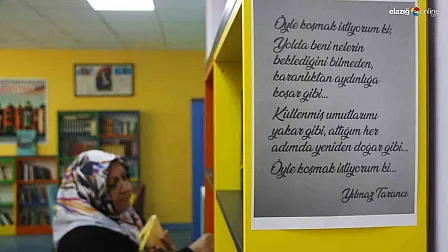 elazığ online
Öyle koşmak istiyorum ki;
Yolda beni nelerin
beklediğini bilmeden,
karanlıktan aydınlığa
koşar gibi...
Küllenmiş umutlarımı
yakar gibi, attığım her
adımda yeniden doğar gibi...
Öyle koşmak istiyorum ki...
Yılmaz Tarancı